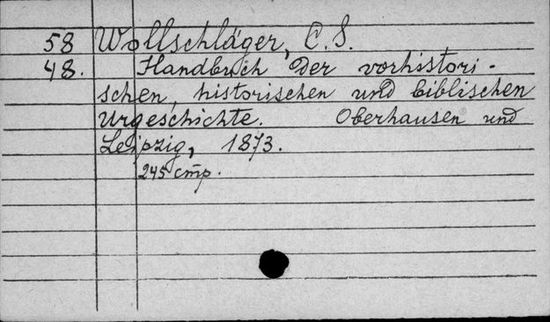 58 Wollschläger, C. S.
48. Handbuch der vorhistori-
schen, historischen und biblischen
Urgeschichte. Oberhausen und
Leipzig, 1873.
245 cmp.